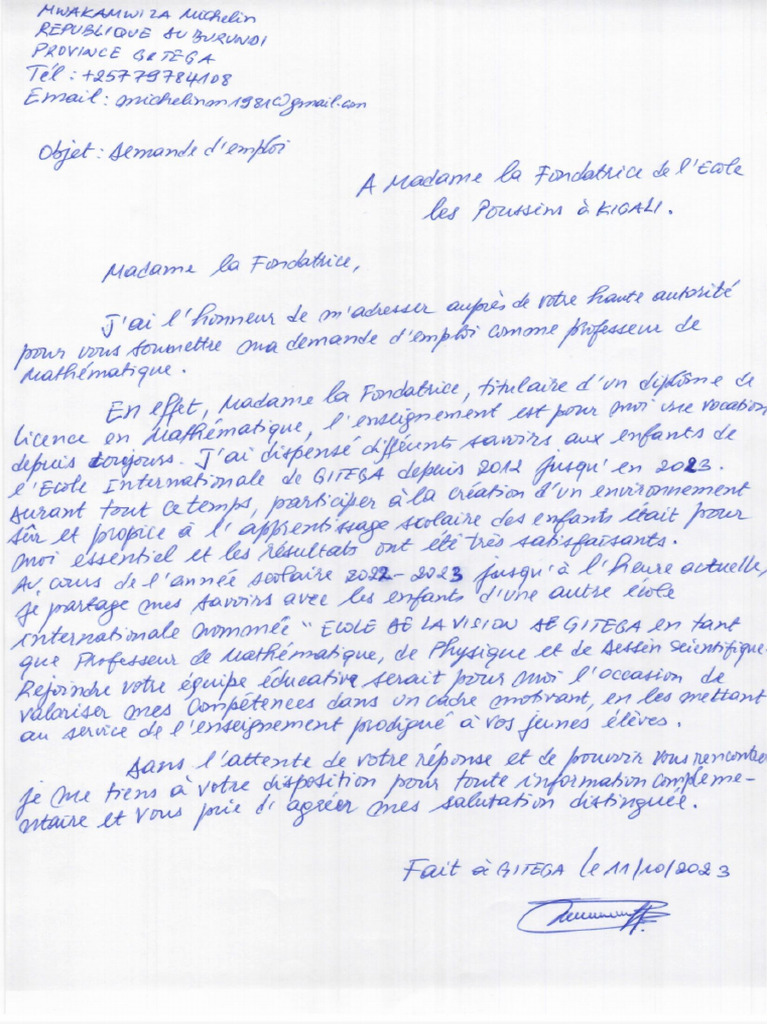 MWAKAMWIZA Michelin
REPUBLIQUE DU BURUNDI
PROVINCE GITEGA
Tél : +25779784108
Email : michelinm1981@gmail.com
Objet : Demande d'emploi
A Madame la Fondatrice de l'Ecole
les Poussins à KIGALI.
Madame la Fondatrice,
J'ai l'honneur de m'adresser auprès de votre haute autorité
pour vous soumettre ma demande d'emploi comme professeur de
Mathématique.
En effet, Madame la Fondatrice, titulaire d'un diplôme de
licence en Mathématique, l'enseignement est pour moi une vocation
depuis toujours. J'ai dispensé différents savoirs aux enfants de
l'Ecole Internationale de GITEGA depuis 2012 jusqu'en 2023.
Durant tout ce temps, participer à la création d'un environnement
sûr et propice à l'apprentissage scolaire des enfants était pour
moi essentiel et les résultats ont été très satisfaisants.
Au cours de l'année scolaire 2022-2023 jusqu'à l'heure actuelle,
je partage mes savoirs avec les enfants d'une autre école
internationale nommée " ECOLE DE LA VISION DE GITEGA en tant
que Professeur de Mathématique, de Physique et de Dessin Scientifique.
Rejoindre votre équipe éducative serait pour moi l'occasion de
valoriser mes Compétences dans un cadre motivant, en les mettant
au service de l'enseignement prodigué à vos jeunes élèves.
Dans l'attente de votre réponse et de pouvoir vous rencontrer
je me tiens à votre disposition pour toute information complémé-
ntaire et vous prie d'agréer mes salutation distinguée.
Fait à GITEGA le 11/10/2023